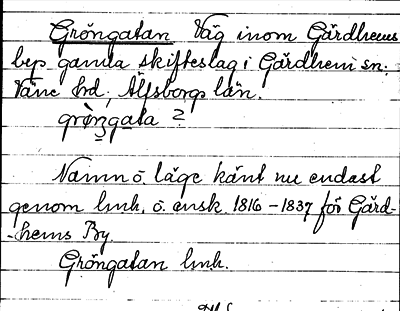 Gröngatan Väg inom Gärdhems
bys gamla skifteslag i Gärdhem sn.
Väne hrd, Älfsborgs län.
grö̀ngata 2
Namn o. läge känt nu endast
genom lmh. o. ensk. 1816 - 1837 för Gärd-
-hems By.
Gröngatan lmh.